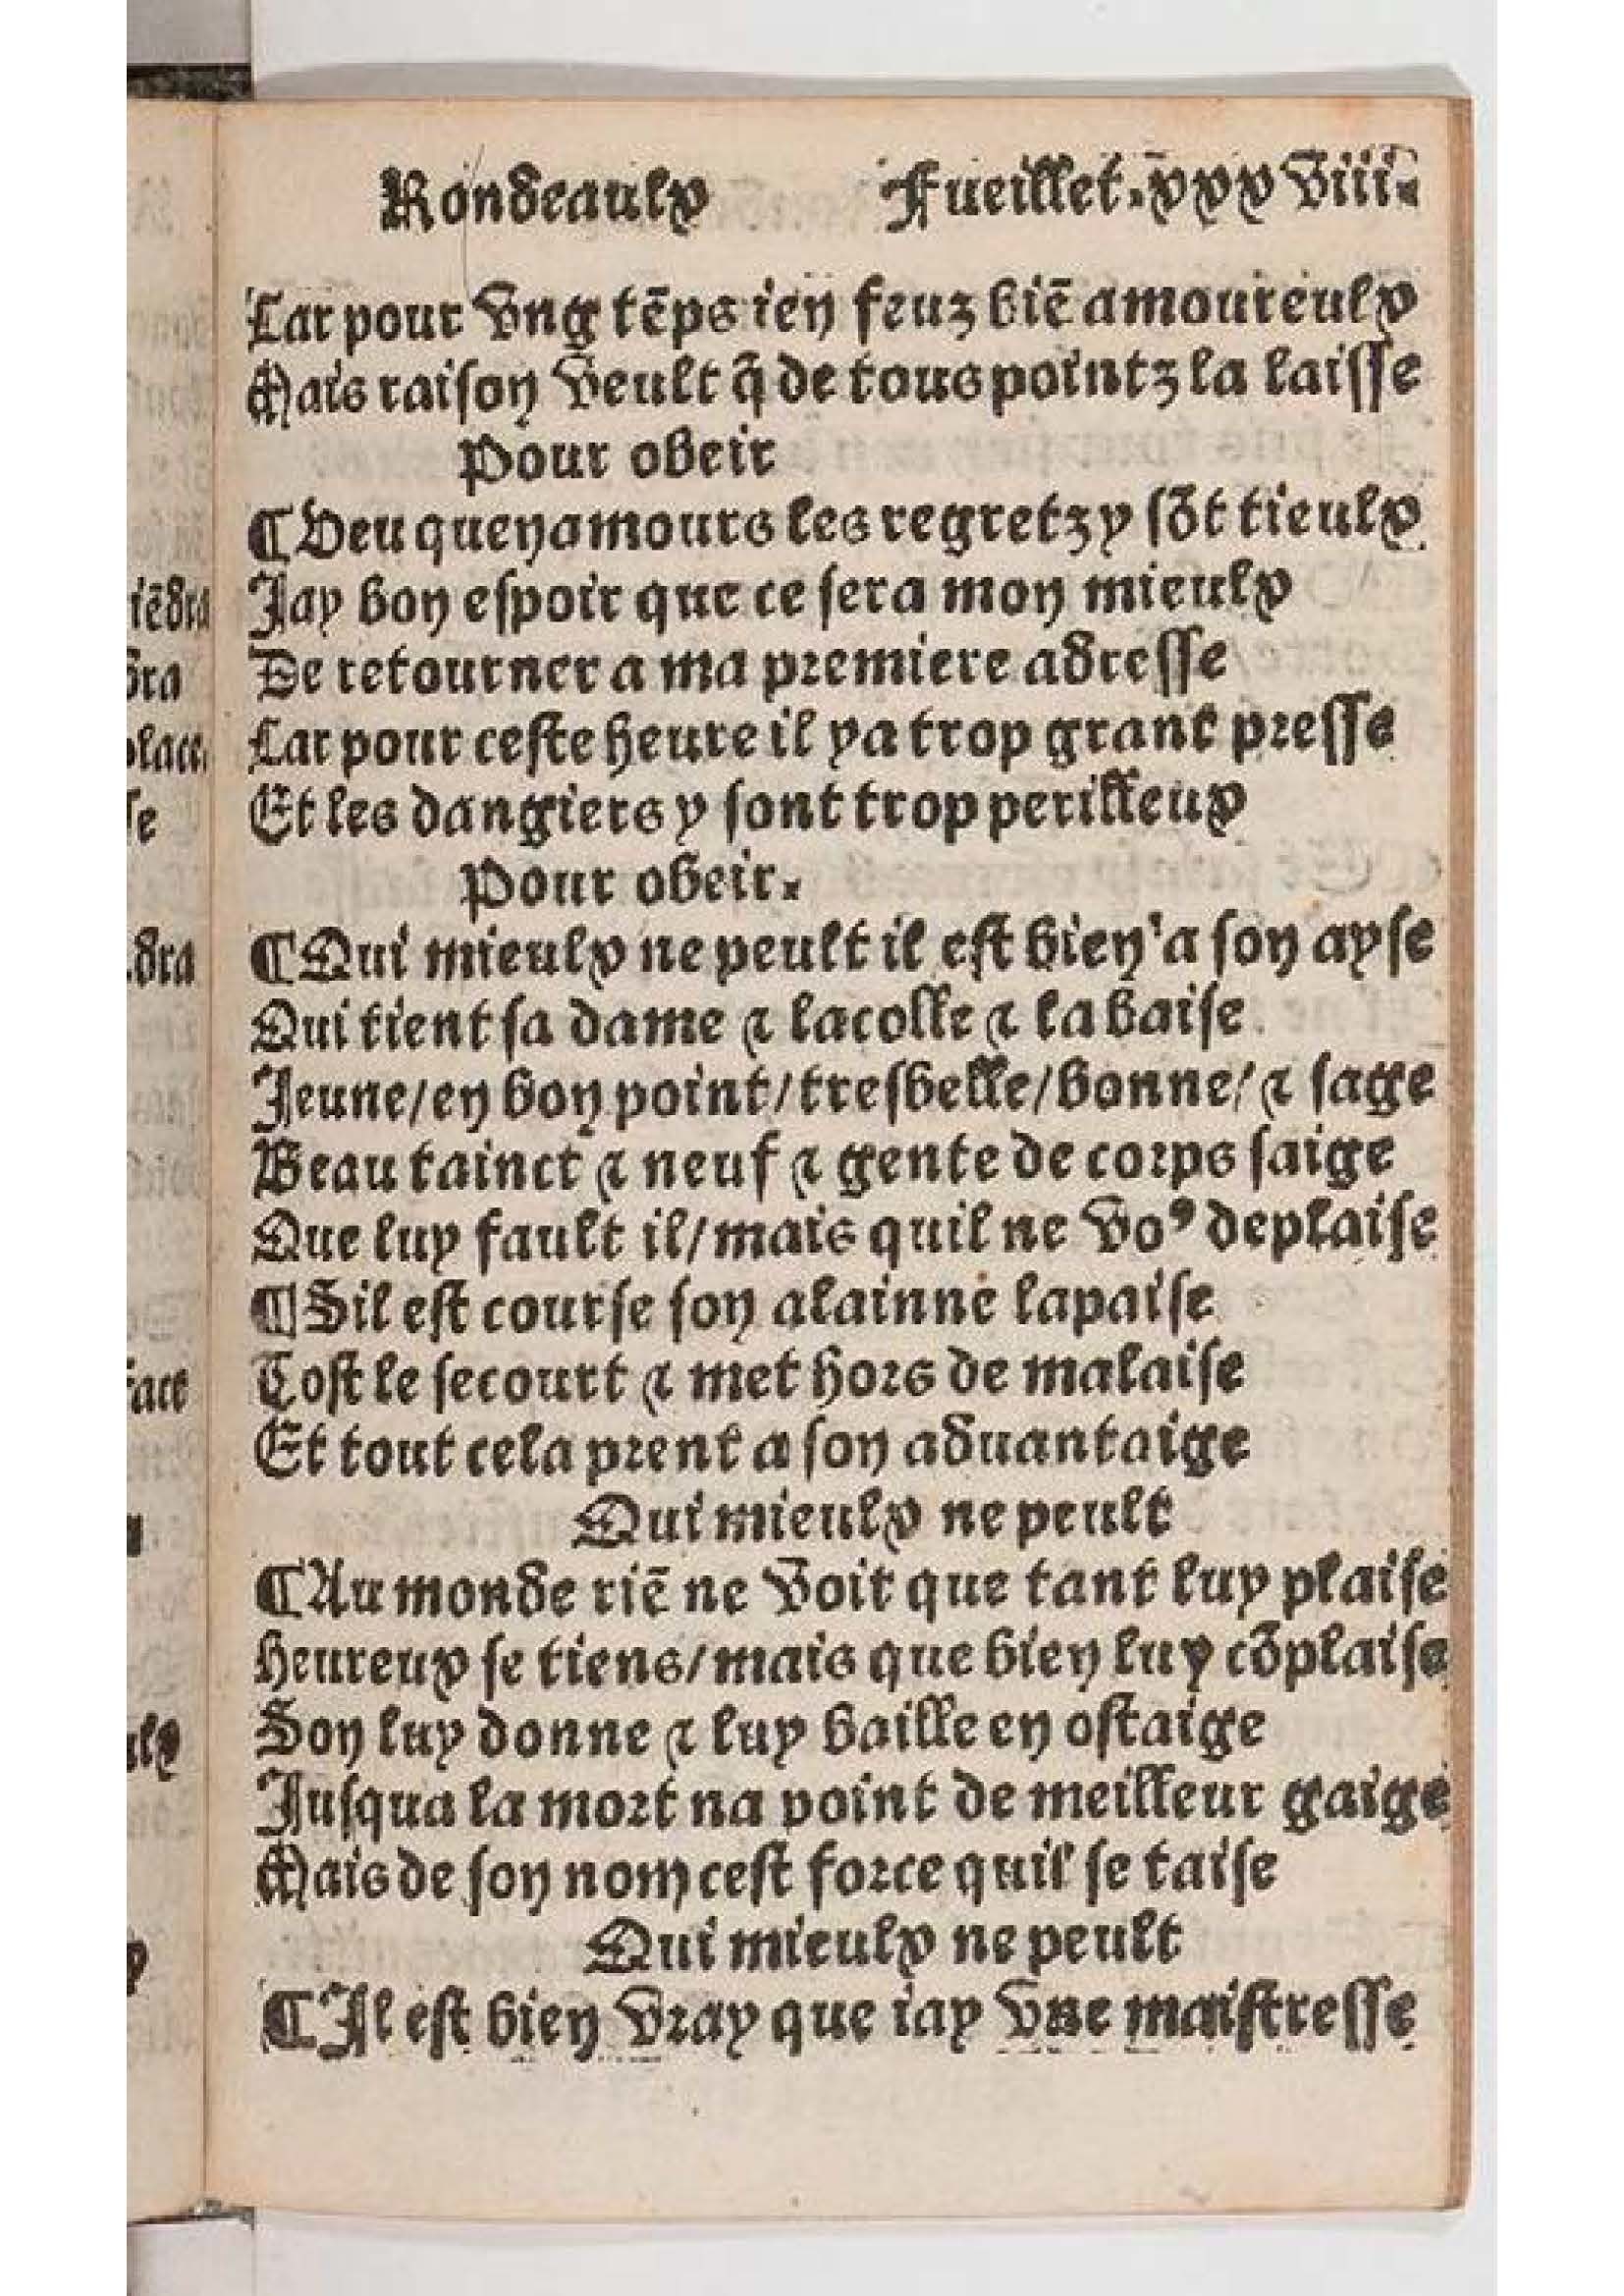 Rondeaulx Fueillet.xxxviii.
Car pour vng tēps ien feuz biē amoureulx
Mais raison veult q̄ de tous pointz la laisse
Pour obeir
¶Veu quen amours les regretz y sōt tieulx
Jay bon espoir que ce sera mon mieulx
De retourner a ma premiere adresse
Car pour ceste heure il ya trop grant presse
Et les dangiers y sont trop perilleux
Pour obeir.
¶Qui mieulx ne peult il est bien a son ayse
Qui tient sa dame & lacolle & la baise
Jeune/en bon point/tresbelle/bonne/& sage
Beau tainct & neuf & gente de corps saige
Que luy fault il/mais quil ne voꝰ deplaise
¶Sil est course son alainne lapaise
Tost le secourt & met hors de malaise
Et tout cela prent a son aduantaige
Qui mieulx ne peult
¶Au monde riē ne voit que tant luy plaise
Heureux se tiens/mais que bien luy cōplaise
Son luy donne & luy baille en ostaige
Jusqua la mort na point de meilleur gaige
Mais de son nom cest force quil se taise
Qui mieulx ne peult
¶Il est bien vray que iay vne maistresse